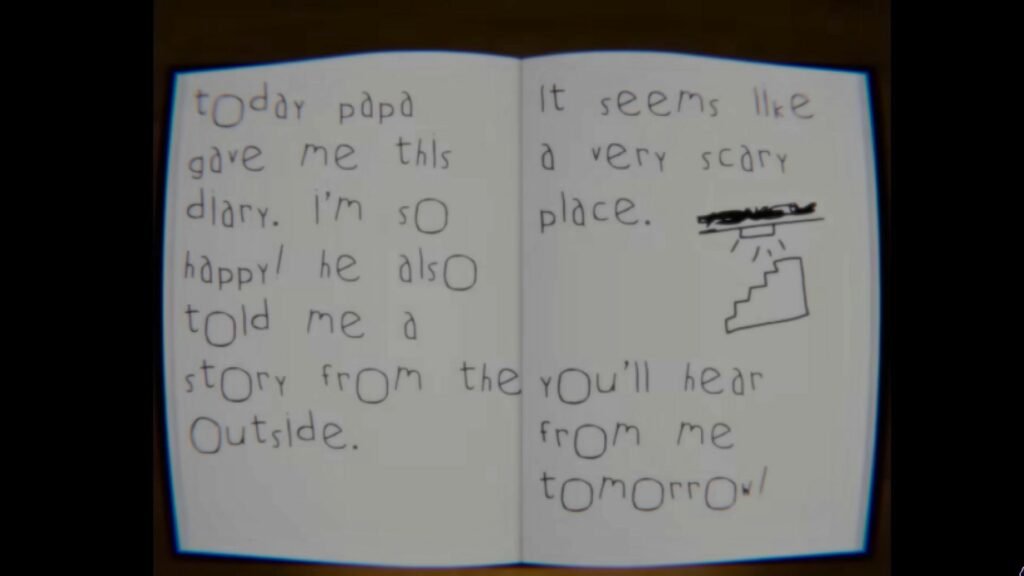 today papa
gave me this
diary. i'm so
happy! he also
told me a
story from the
outside.
It seems like
a very scary
place.
you'll hear
from me
tomorrow!